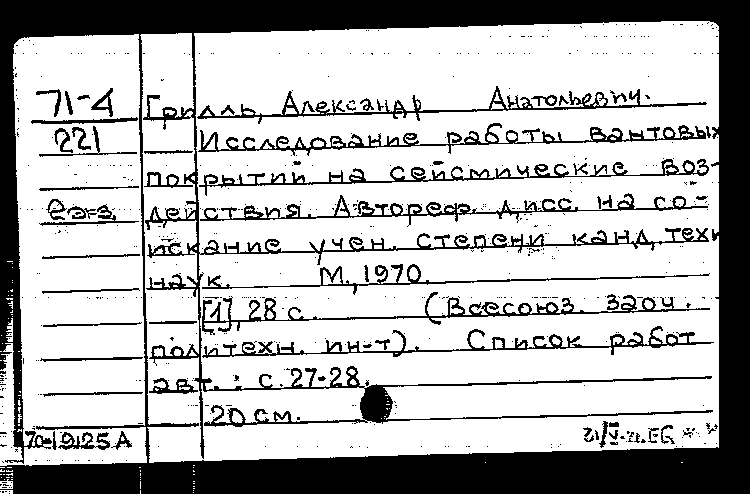 71-4 Грилль, Александр Анатольевич.
221 Исследование работы вантовых
покрытий на сейсмические воз-
действия. Автореф. дисс. на со-
искание учен. степени канд. техн
наук. М., 1970.
[1], 28 с. (Всесоюз. заоч.
политехн. ин-т). Список работ
авт.: с. 27-28.
20 см.
70-19125 А